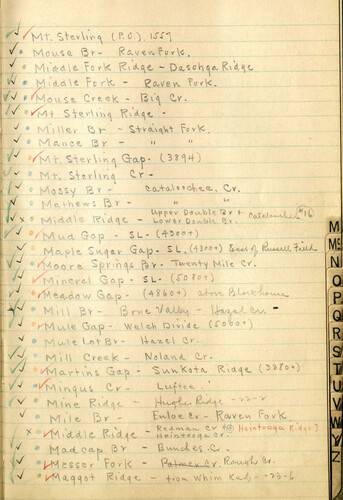 Mt. Sterling (P.O.) 1557
Mouse Br - Raven Fork.
Middle Fork Ridge - Dashoga Ridge
Middle Fork - Raven Fork.
Mouse Creek - Big Cr.
Mt Sterling Ridge -
Miller Br - Straight Fork.
Mance Br - " "
Mt. Sterling Gap. (3894)
Mt. Sterling Cr -
Mossy Br - Cataloochee Cr.
Mathews Br - " "
Middle Ridge - Upper Double Br + Lower Double Cr. Cataloochee #16
Mud Gap - SL - (4300±)
Maple Sugar Gap - SL. (4300±) East of Russell Field
Moore Springs Br - Twenty Mile Cr.
Mineral Gap - SL (5080±)
Meadow Gap - (4860±) above Blockhouse
Mill Br - Bone Valley - Hazel Cr
Mule Gap - Welch Divide (5000±)
Mule Lot Br - Hazel Cr.
Mill Creek - Noland Cr.
Martins Gap - Sunkota Ridge (3280±)
Mingus Cr - Luftee
Mine Ridge - Hughe Ridge - 22-2
Mile Br - Enloe Cr - Raven Fork
Middle Ridge - Redman Cr Heintooga Cr. @ Heintooga Ridge?
Madcap Br - Bunches Cr.
Messer Fork - Palmer Cr. Rough Cr.
Maggot Ridge - from Whim Knob - 22-6
M
Mc
N
O
P
Q
R
S
T
U
V
W
Y
Z